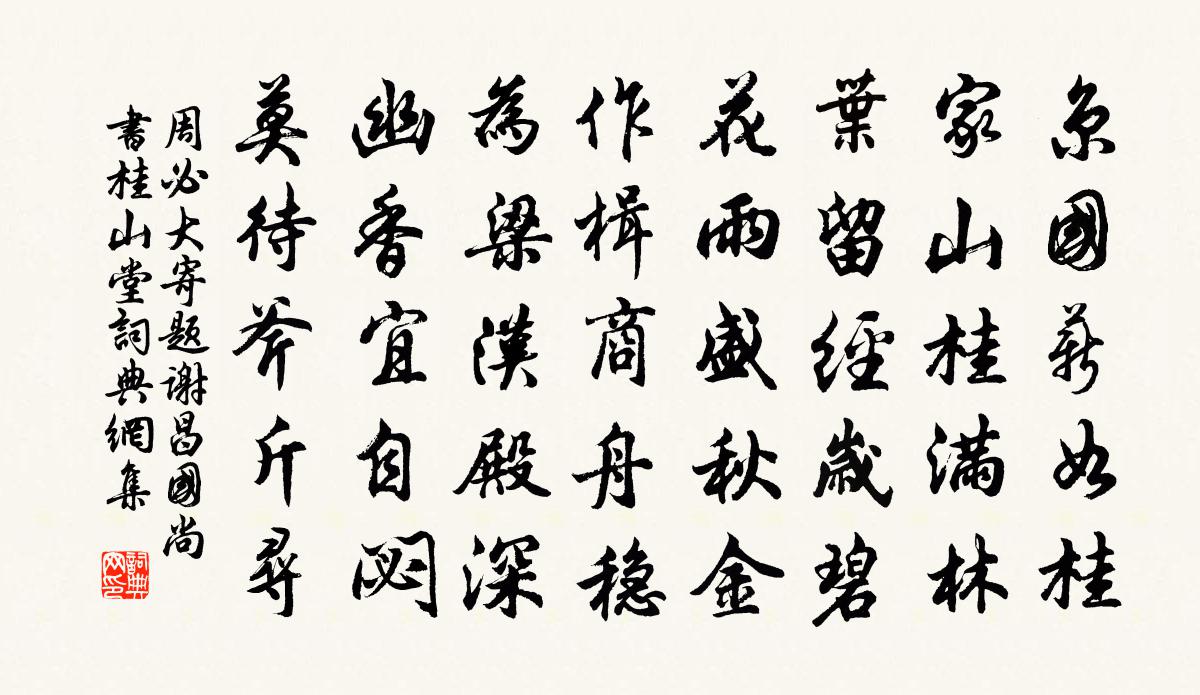 京國薪如桂
家山桂滿林
葉留經歲碧
花兩盛秋金
作楫商舟穩
為梁漢殿深
幽香宜自閟
莫待斧斤尋
周必大寄題謝昌國尚
書桂山堂詞典網集
詞典网印